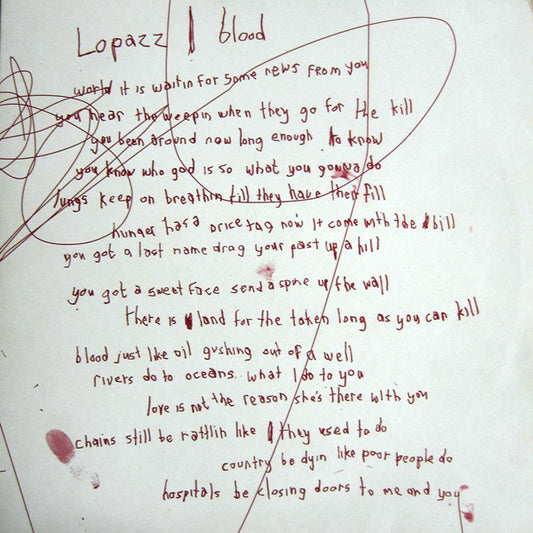 Lopazz | blood
world it is waitin for some news from you
you hear the weepin when they go for the kill
you been around now long enough to know
you know who god is so what you gonna do
lungs keep on breathin till they have their fill
hunger has a price tag now it come with the bill
you got a last name drag your past up a hill
you got a sweet face send a spine up the wall
there is land for the taken long as you can kill
blood just like oil gushing out of a well
rivers do to oceans. what I do to you
love is not the reason she's there with you
chains still be rattlin like they used to do
country be dyin like poor people do
hospitals be closing doors to me and you